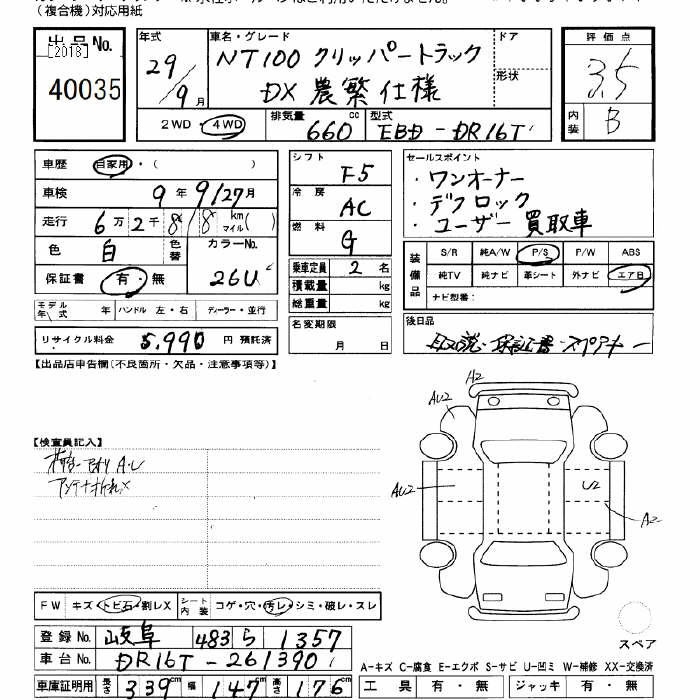 (複合機)対応用紙
出品No. [2018] 40035
年式 29/9月
車名・グレード NT100 クリッパートラック DX 農繁仕様
ドア
形状
2WD・4WD
排気量 660 cc
型式 EBD-DR16T
評価点 3.5
内装 B
車歴 自家用・( )
車検 9年 9/27月
走行 6万 2千 8/8 km マイル( )
色 白 色替 カラーNo. 26U
保証書 有・無
モデル年式 年 ハンドル 左・右 ディーラー・並行
リサイクル料金 5,990 円 預託済
シフト F5
冷房 AC
燃料 G
乗車定員 2 名
積載量 kg
総重量 kg
名変期限 月 日
セールスポイント
・ワンオーナー
・デフロック
・ユーザー買取車
装備品 S/R 純A/W P/S P/W ABS
純TV 純ナビ 革シート 外ナビ エアB
ナビ型番:
後日品
【出品店申告欄(不良箇所・欠品・注意事項等)】
【検査員記入】
A・U
アンテナ折れX
A2
AU2
AU2
U2
A2
FW キズ・トビ石・割レX シート内装 コゲ・穴・汚レ・シミ・破レ・スレ
登録No. 岐阜 483 ら 1357
車台No. DR16T-261390
車庫証明用 長さ 339cm 幅 147cm 高さ 176cm
スペア
A-キズ C-腐食 E-エクボ S-サビ U-凹ミ W-補修 XX-交換済
工具 有・無 ジャッキ 有・無